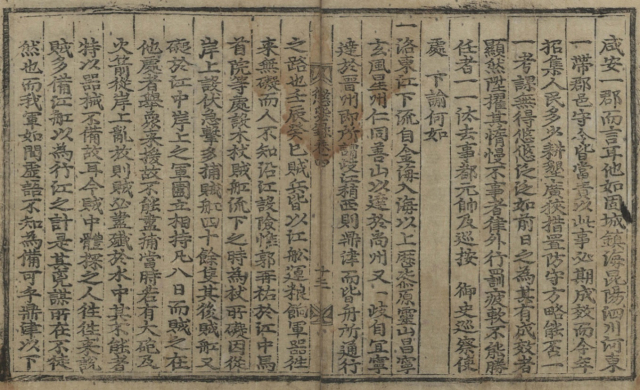 咸安一郡而言耳他如固城鎮海昆陽泗川河東
一帶郡邑守令皆當責以此事必期成效而今年
招集人民多少耕墾廣狹措置防守方略修否一
一考課無得悠悠泛泛如前日之為其有成效者
顯然陞擢其惰慢不事者律外行罰疲軟不能勝
任者一一汰去事都元帥及巡按 御史巡察使
處 下諭何如
一洛東江下流自金海入海以上歷原靈山昌寧
玄風星州仁同善山以達於尚州又一歧自宜寧
達於晉州即所謂西則鼎津而皆舟所通行
十三
之路也壬辰癸巳賊兵皆以江船運粮餉軍器往
來無礙而人不知沿江設險惟郭再祐於江中馬
首院等處設木杙賊船流下之時為杙所礙因從
岸上設伏急擊多捕賊船四十餘隻其後賊船又
礙於江中岸上之軍圍立相持凡八日而賊之在
他處者聚眾來援故不能盡捕當時若有大砲及
火箭從岸上亂放則賊必盡殲於水中其不能者
特以器械不備故耳今賊中體探之人往往來說
賊多備江船以為行江之計是其兇謀所在不徒
然也而我軍如聞虛語不知為備可乎鼎津以下